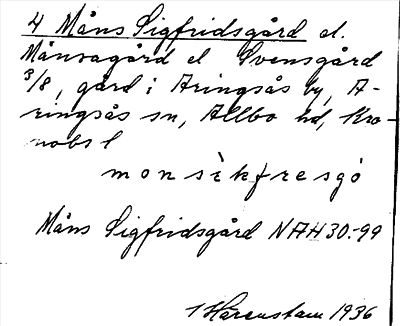 4 Måns Sigfridsgård el.
Månsagård el Svensgård
3/8, gård i Aringsås by, A-
ringsås sn, Allbo hd, Kro-
nobs l
monsèkfresgó
Måns Sigfridsgård NAH 30.-99
Härenstam 1936